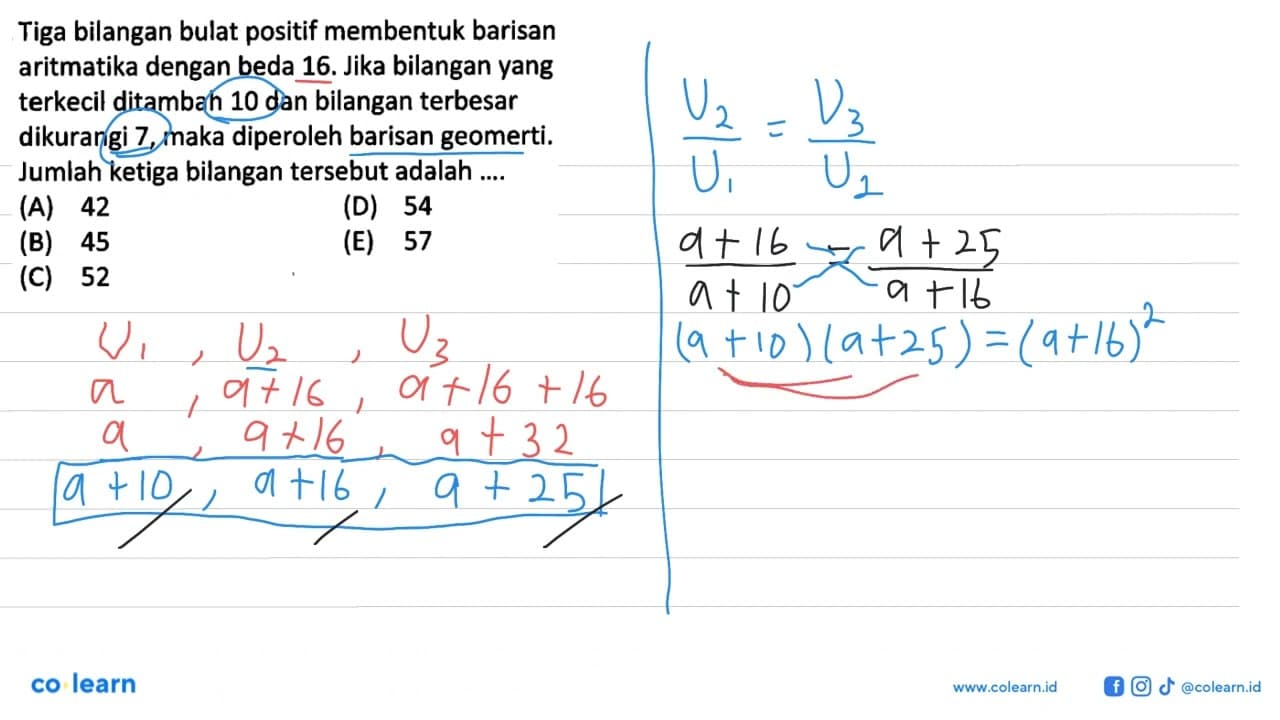 Tiga bilangan bulat positif membentuk barisan
aritmatika dengan beda 16. Jika bilangan yang
terkecil ditambah 10 dan bilangan terbesar
dikurangi 7, maka diperoleh barisan geomerti.
Jumlah ketiga bilangan tersebut adalah ....
(A) 42 (D) 54
(B) 45 (E) 57
(C) 52
U₁ , U₂ , U₃
a , a+16 , a+16+16
a , a+16 , a+32
a+10 , a+16 , a+25
U₂/U₁ = U₃/U₂
(a+16)/(a+10) = (a+25)/(a+16)
(a+10)(a+25)=(a+16)²
co learn
www.colearn.id
@colearn.id